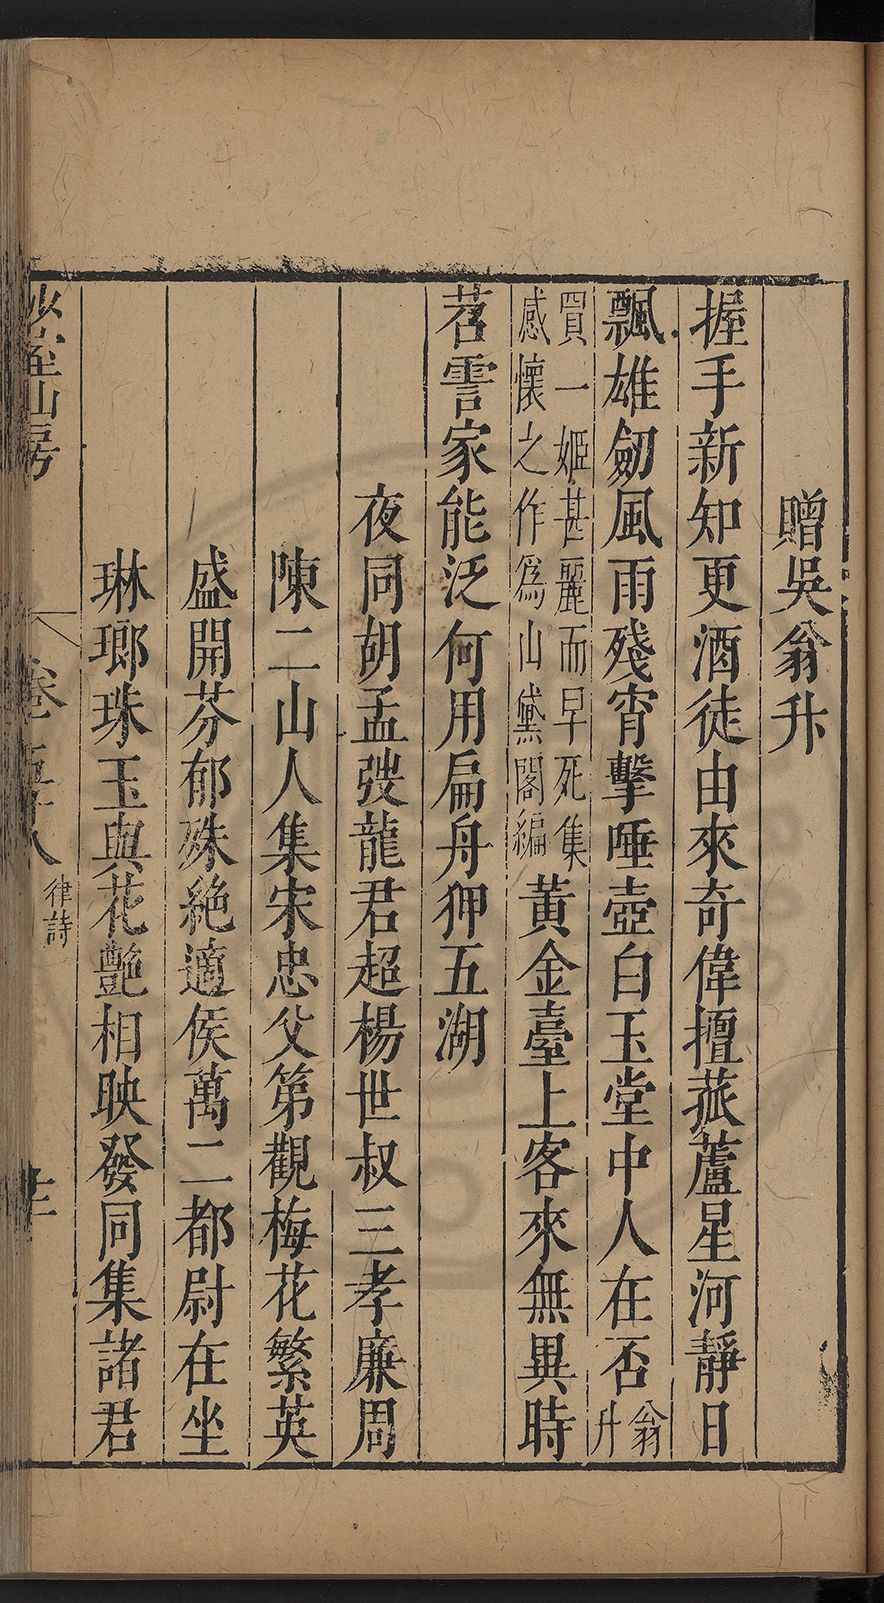 贈吳翁升
握手新知更酒徒由來奇偉擅菰蘆星河靜日
飄雄劒風雨殘宵擊唾壺白玉堂中人在否翁升
買一姬甚麗而早死集感懷之作爲山黛閣編黃金臺上客來無異時
苕霅家能泛何用扁舟狎五湖
夜同胡孟弢龍君超楊世叔三孝廉周
陳二山人集宋忠父第觀梅花繁英
盛開芬郁殊絕適侯萬二都尉在坐
琳瑯珠玉與花艶相映發同集諸君
室山房
卷
律詩